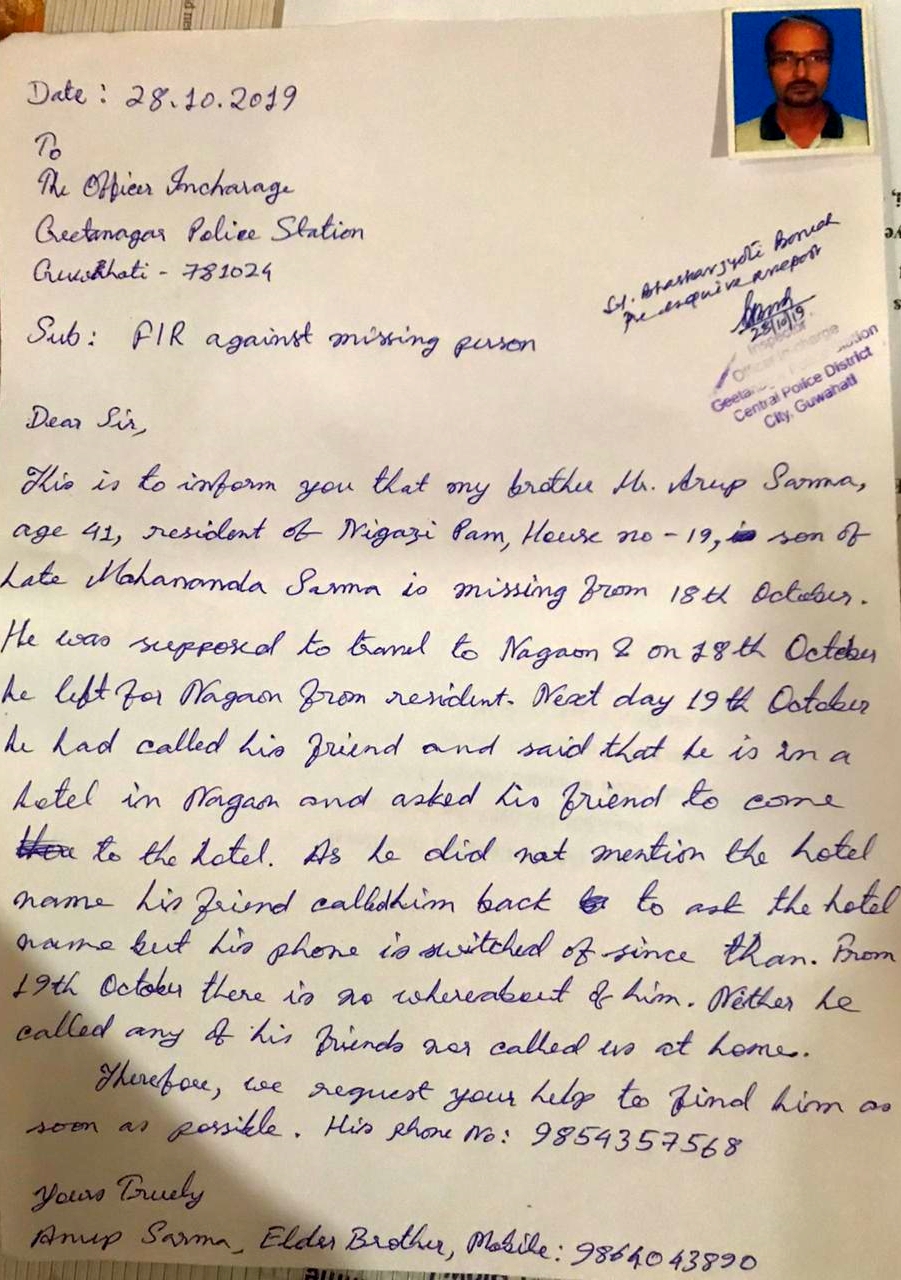 Date : 28.10.2019
To
The Officer Incharage
Geetanagar Police Station
Guwahati - 781024
Sub : FIR against missing person
SI. Bhaskarjyoti Boruah
Pe enquire & report
28/10/19
Inspector
Officer Incharge
Geetanagar Police Station
Central Police District
City, Guwahati
Dear Sir,
This is to inform you that my brother Mr. Arup Sarma,
age 41, resident of Nigazi Pam, House no - 19, son of
Late Mahananda Sarma is missing from 18th October.
He was supposed to travel to Nagaon & on 18th October
he left for Nagaon from resident. Next day 19th October
he had called his friend and said that he is in a
hotel in Nagaon and asked his friend to come
to the hotel. As he did not mention the hotel
name his friend called him back to ask the hotel
name but his phone is switched of since than. From
19th October there is no whereabout of him. Nether he
called any of his friends nor called us at home.
Therefore, we request your help to find him as
soon as possible. His phone No: 9854357568
Yours Truely
Anup Sarma, Elder Brother, Mobile: 9864043890